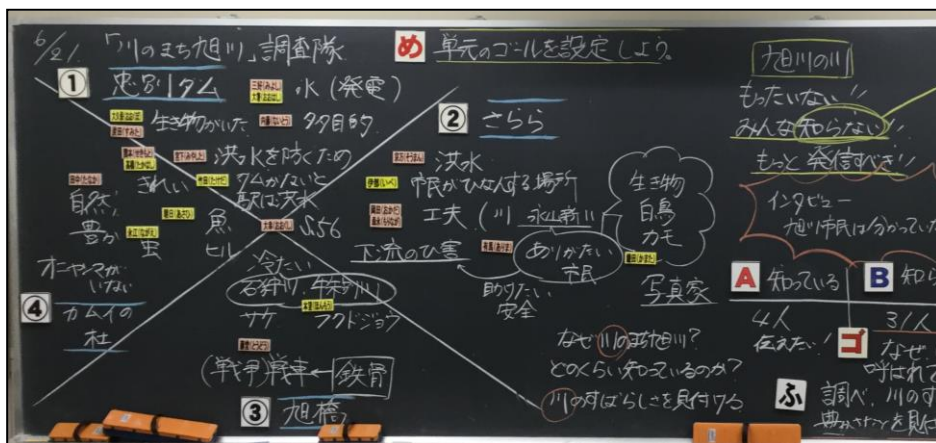 6/21 「川のまち旭川」調査隊
め 単元のゴールを設定しよう。
①
忠別ダム
水(発電)
生き物がいた
多目的
洪水を防ぐため
きれい
ダムがないと
駅は洪水
自然
豊か
虫
魚
ヒル
S56
②
さらら
洪水
市民がひなんする場所
工夫(川 永山新川
下流のひ害
ありがたい
市民
助けたい
安全
生き物
白鳥
カモ
写真家
オニヤンマが
いない
④
カムイの
杜
冷たい
石狩川、牛朱別川
サケ
フクドジョウ
(戦争)戦車←鉄骨
③
旭橋
なぜ川のまち旭川?
どのくらい知っているのか?
川のすばらしさを見付ける
旭川の川
もったいない!!
みんな知らない!!
もっと発信すべき!!
インタビュー
旭川市民は分かっていた
A 知っている
B 知ら
4人
伝えたい!
31人
ゴ
なぜ
呼ばれ
ふ
調べ、川のす